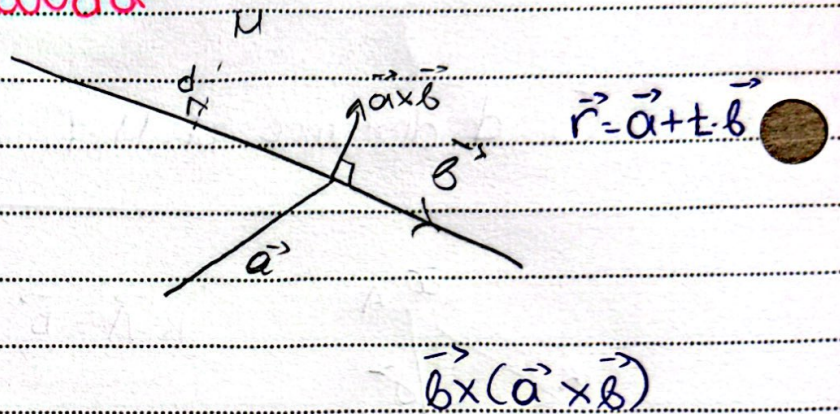 M
d
a⃗×b⃗
r⃗=a⃗+t·b⃗
b⃗
a⃗
b⃗×(a⃗×b⃗)